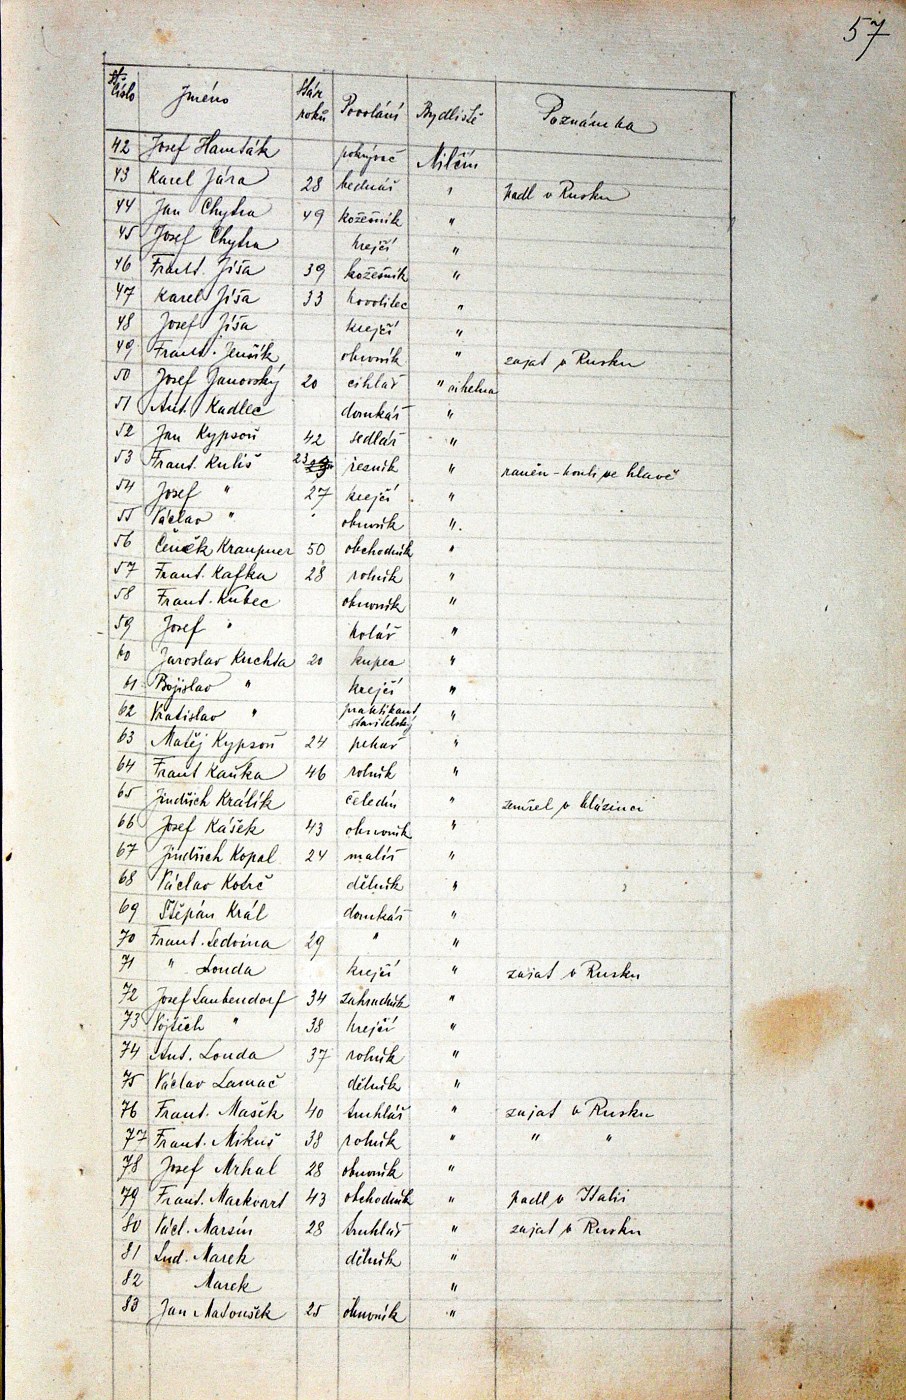 57
Číslo Jméno Stár roků Povolání Bydliště Poznámka
42 Josef Hamták pokrývač Milčín
43 Karel Jára 28 bednář " padl v Rusku
44 Jan Chytra 49 kožešník "
45 Josef Chytra krejčí "
46 Frant. Jíša 39 kožešník "
47 Karel Jíša 33 kovolitec "
48 Josef Jíša krejčí "
49 Frant. Jenšík obuvník " zajat v Rusku
50 Josef Janovský 20 cihlář " cihelna
51 Ant. Kadlec domkář "
52 Jan Kypsoň 42 sedlář "
53 Frant. Kuliš 23 řezník " raněn - koulí ve hlavě
54 Josef " 27 krejčí "
55 Václav " obuvník "
56 Čeněk Kraupner 50 obchodník "
57 Frant. Kafka 28 rolník "
58 Frant. Kubec obuvník "
59 Josef " kolář "
60 Jaroslav Kuchta 20 kupec "
61 Bojislav " krejčí "
62 Vratislav " praktikant stavitelský "
63 Matěj Kypsoň 24 pekař "
64 Frant Kaňka 46 rolník "
65 Jindřich Králík čeledín " zemřel v blázinci
66 Josef Kášek 43 obuvník "
67 Jindřich Kopal 24 malíř "
68 Václav Kotrč dělník "
69 Štěpán Král domkář "
70 Frant. Ledvina 29 " "
71 " Louda krejčí " zajat v Rusku
72 Josef Laubendorf 34 zahradník "
73 Vojtěch " 38 krejčí "
74 Ant. Louda 37 rolník "
75 Václav Lamač dělník "
76 Frant. Mašek 40 truhlář " zajat v Rusku
77 Frant. Mikeš 38 rolník " " "
78 Josef Mrhal 28 obuvník "
79 Frant. Markvart 43 obchodník " padl v Italii
80 Václ. Marsín 28 truhlář " zajat v Rusku
81 Lud. Marek dělník "
82 Marek "
83 Jan Matoušek 25 obuvník "